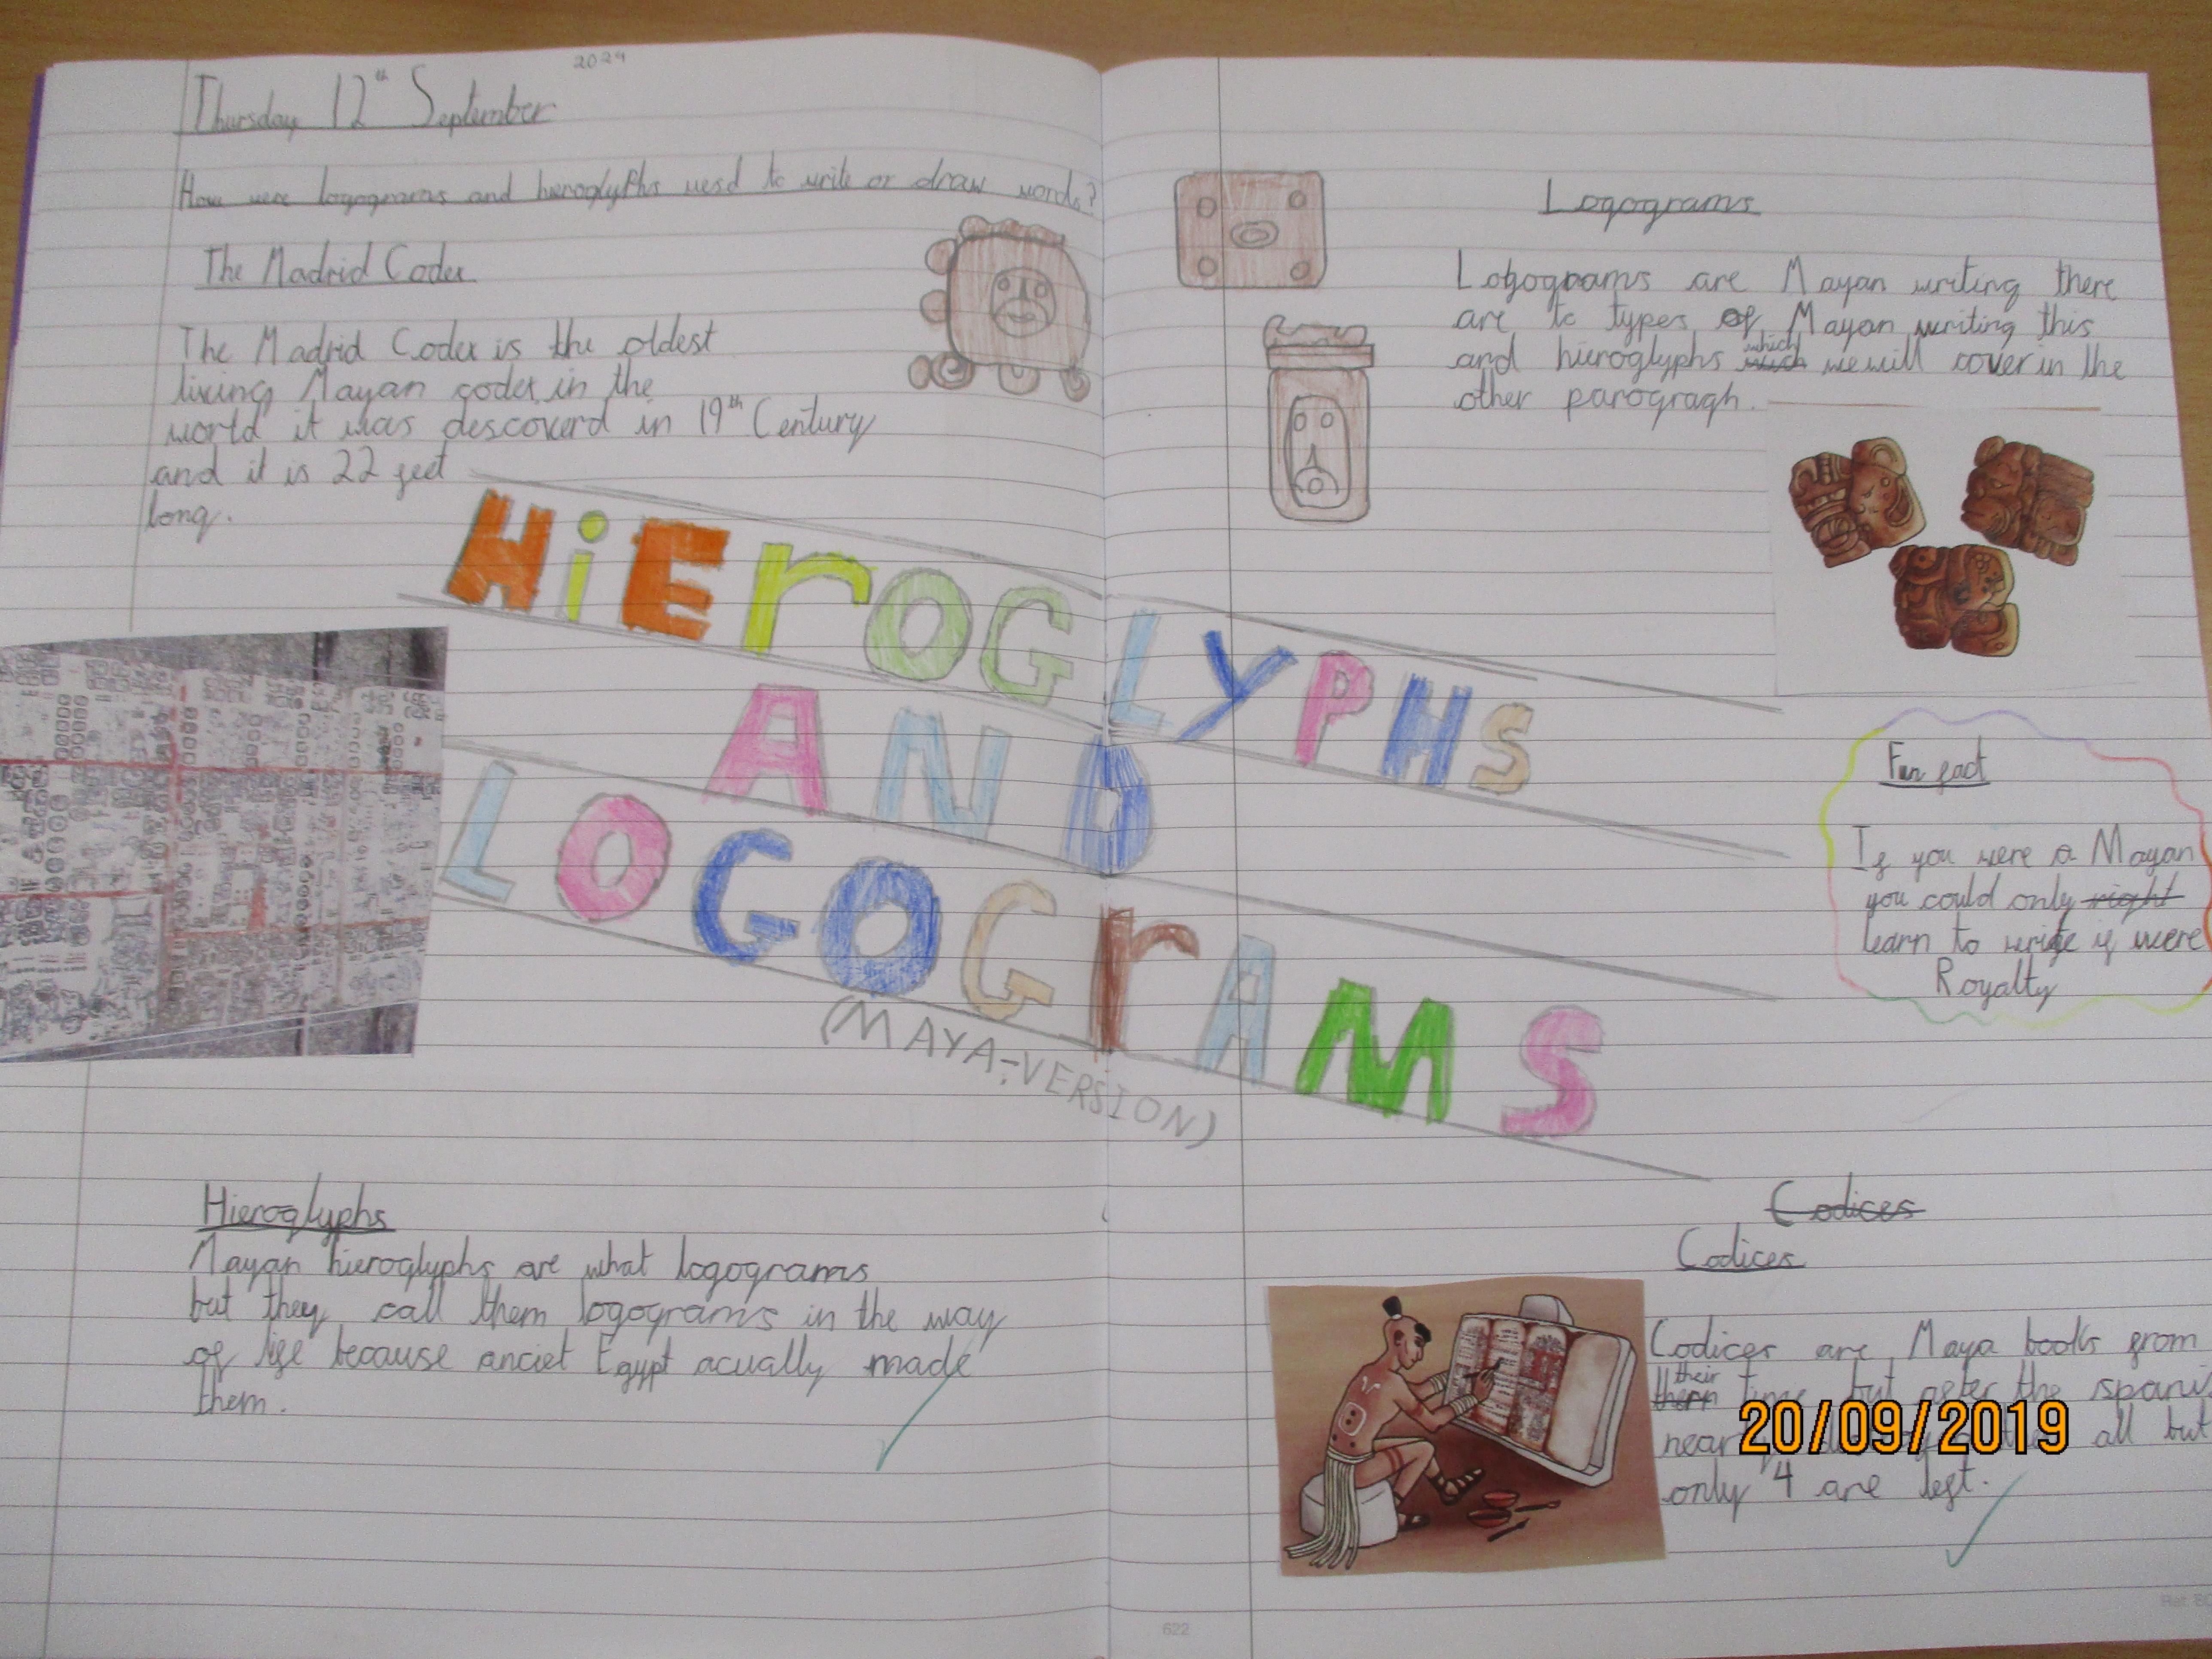 2024
Thursday 12th September
How were logograms and hieroglyphs uesd to write or draw words?
The Madrid Codex
The Madrid Codex is the oldest
living Mayan codex in the
world it was descoverd in 19th Century
and it is 22 feet
long.
HiEroGLyPHS
AND
LOGOGrAMS
(MAYA-VERSION)
Hieroglyphs
Mayan hieroglyphs are what logograms
but they call them logograms in the way
of life because anciet Egypt acually made
them.
Logograms
Logograms are Mayan writing there
are to types of Mayan writing this
and hieroglyphs which we will cover in the
other paragragh.
Fun fact
If you were a Mayan
you could only right
learn to write if were
Royalty
Codices
Codices
Codices are Maya books from
their time but after the spani
all but
only 4 are left.
20/09/2019
622